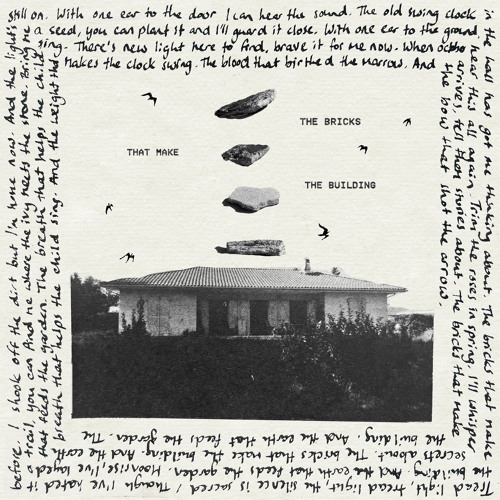 still on. With one ear to the door I can hear the sound. The old swing clock
a seed, you can plant it and I'll guard it close. With one ear to the ground
sing. There's new light here to find, brave it for me now. When
makes the clock swing. The blood that birthed the marrow. And
in the wall has got me thinking about. The bricks that make
hear this all again. Trim the roses in spring. I'll whisper
arrives, tell stories about. The bricks that make
the bow that shot the arrow.
THE BRICKS
THAT MAKE
THE BUILDING
Tread light, tread light, the silence is sacred, though I've hated it
the building. And the earth that feeds the garden. Moonrise, I've loved
secrets about. The bricks that make the building. And the earth
the building. And the earth that feeds the garden. The
before. I shook off the dirt but I'm home now. And the light's
a trail, you can find me where the ivy meets the stone. Bring me
that feeds the garden. The breath that helps the child
breath that helps the child sing. And the weight that